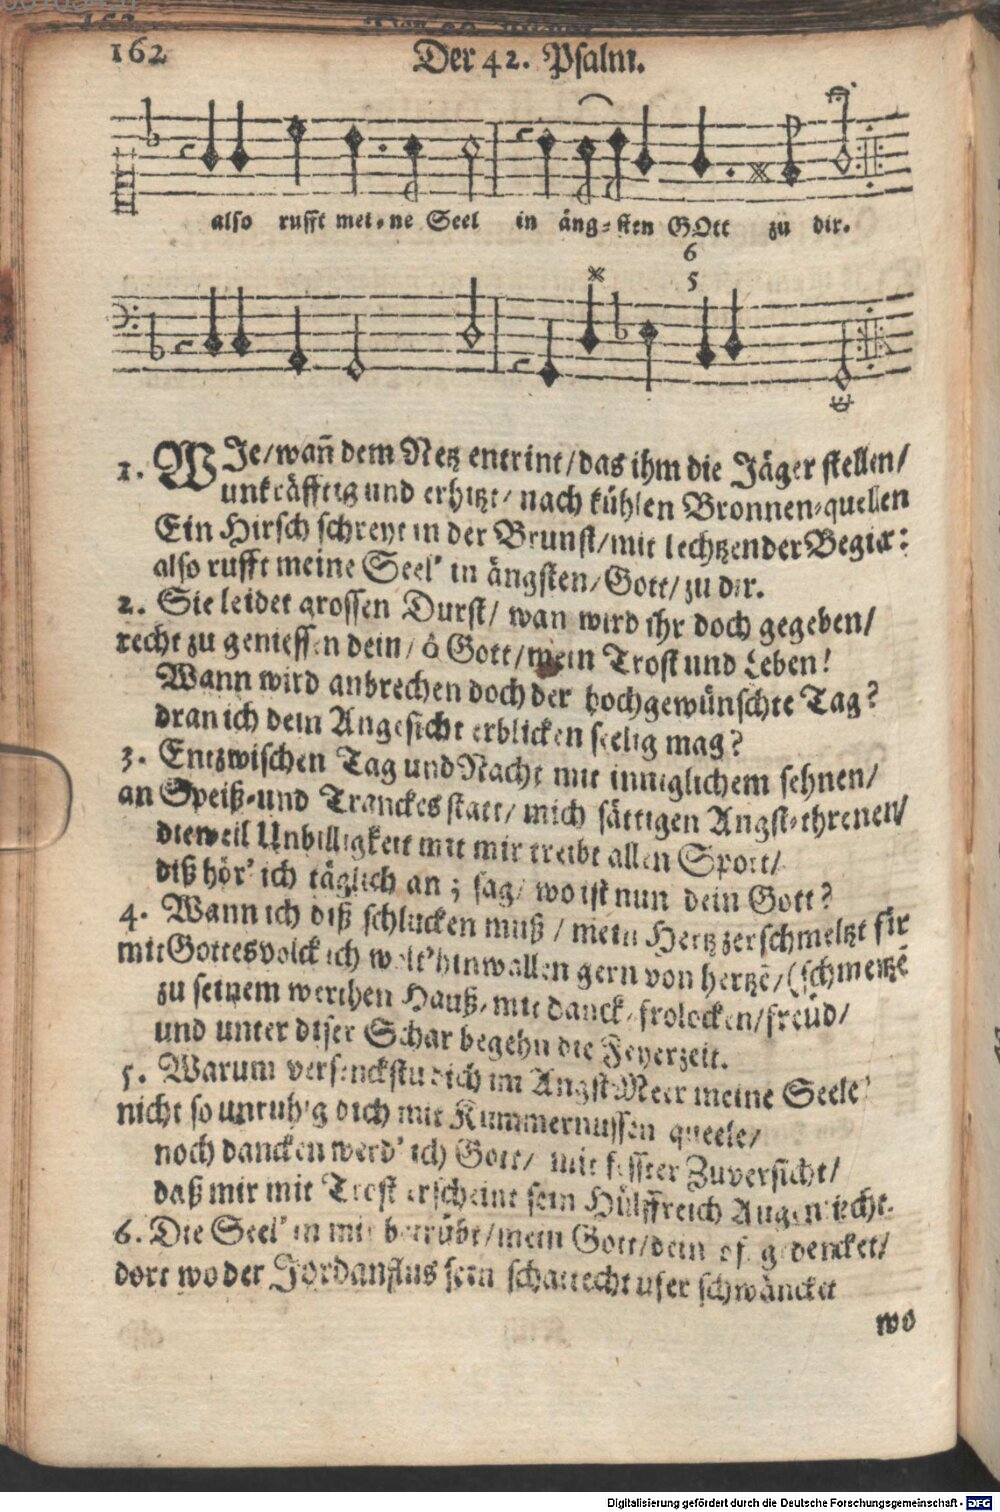 162
Der 42. Psalm.
also rufft mei-ne Seel in ängsten GOtt zu dir.
6
5
1. WJe/wañ dem Netz entrint/das ihm die Jäger stellen/
unkräfftig und erhitzt/ nach kühlen Bronnen-quellen
Ein Hirsch schreyt in der Brunst/mit lechtzender Begir:
also rufft meine Seel' in ängsten/Gott/zu dir.
2. Sie leidet grossen Durst/ wan wird ihr doch gegeben/
recht zu geniessen dein/ ô Gott/mein Trost und Leben!
Wann wird anbrechen doch der hochgewünschte Tag?
dran ich dein Angesicht erblicken seelig mag?
3. Entzwischen Tag und Nacht mit inniglichem sehnen/
an Speiß-und Tranckes statt/ mich sättigen Angst-threnen/
dieweil Unbilligkeit mit mir treibt allen Spott/
diß hör' ich täglich an; sag/ wo ist nun dein Gott?
4. Wann ich diß schlucken muß / mein Hertz zerschmeltzt für
mit Gottesvolck ich wolt' hinwallen gern von hertzē/ (schmertzē
zu seinem werthen Hauß/ mit danck/frolocken/freüd/
und unter diser Schar begehn die Feyerzeit.
5. Warum versenckstu dich im AngstMeer meine Seele
nicht so unruhig dich mit Kummernussen queele/
noch dancken werd' ich Gott/ mit fester Zuversicht/
daß mir mit Trost erscheint sein Hülffreich
6. Die Seel' in mir betrübt/mein Gott/dein gedencket/
dort wo der Jordanflus sein schattecht ufer schwäncket
wo
Digitalisierung gefördert durch die Deutsche Forschungsgemeinschaft - DFG